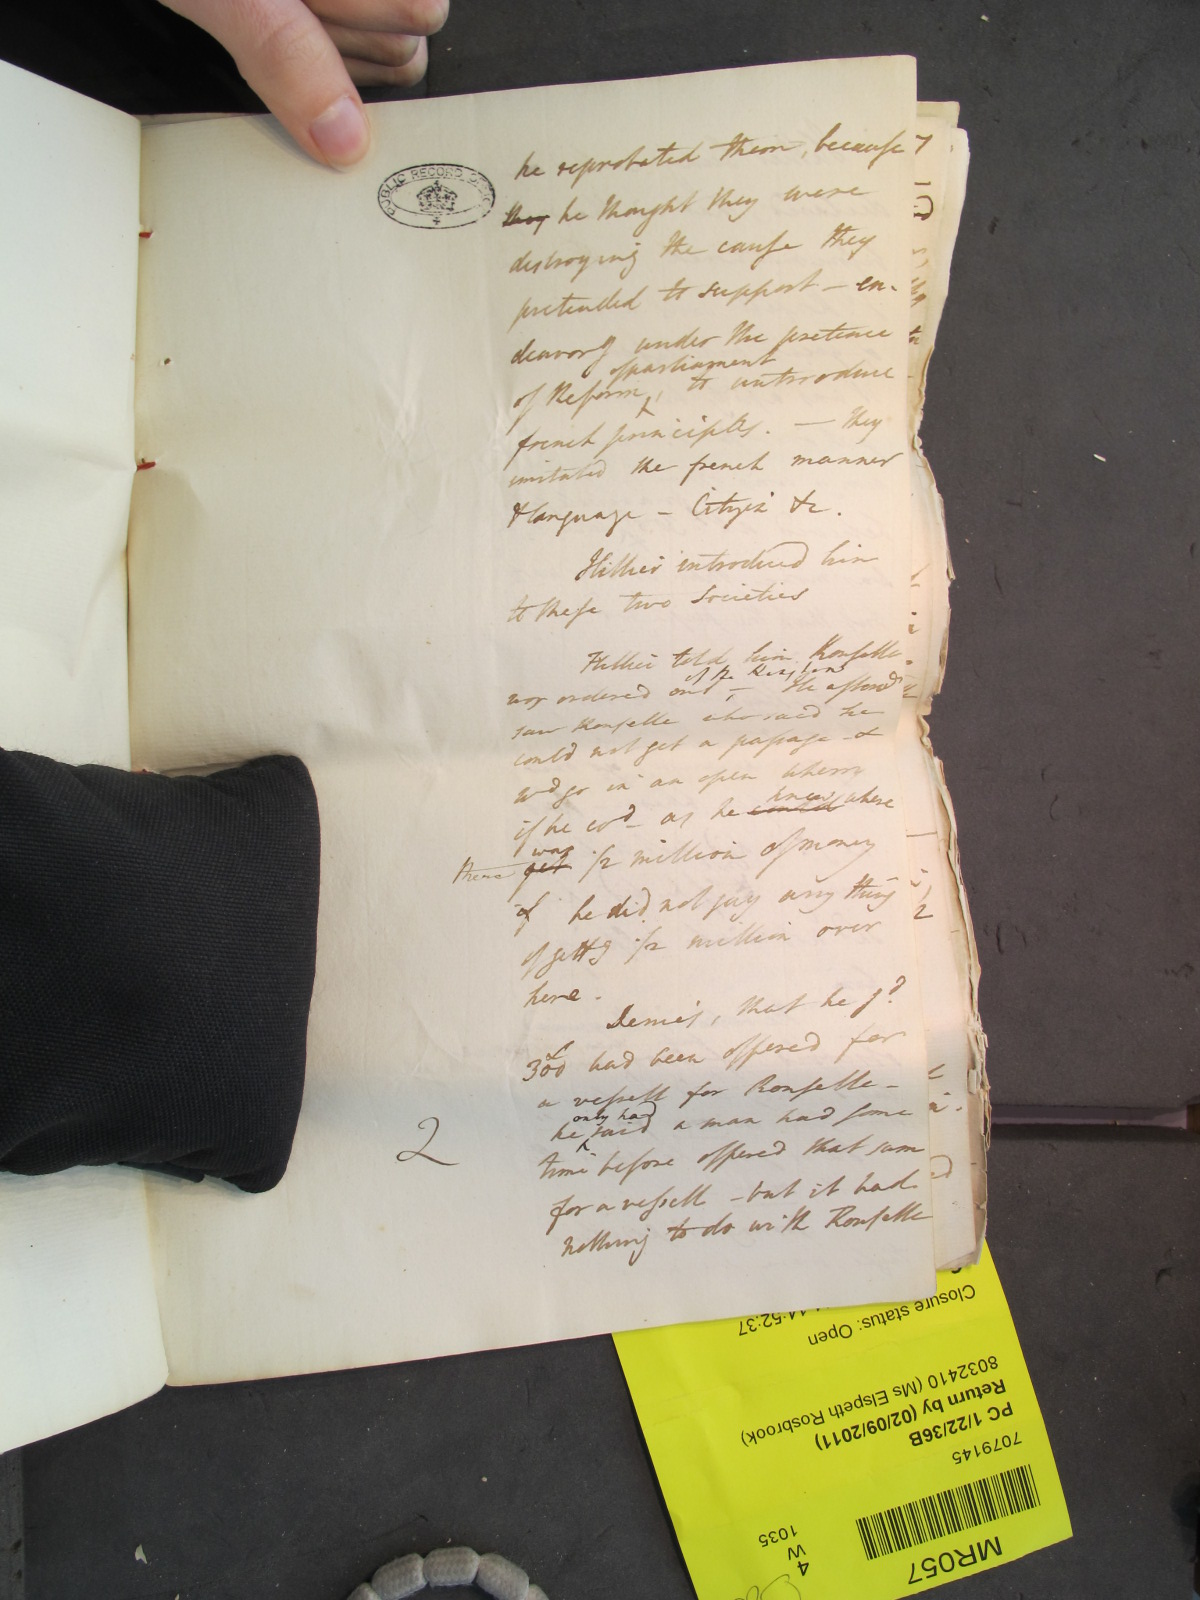 PUBLIC RECORD OFFICE
he reprobated them, because
they he thought they were
destroying the cause they
pretended to support – en-
deavorg under the pretence
of parliament
of Reform, to introduce
french principles. – they
imitated the french manner
& language – Citizn &c.
Hillier introduced him
to these two Societies
Hillier told him Ronselle
of the Kingdom
was ordered out – He afterwds
saw Ronselle who said he
could not get a passage – &
wd go in an open wherry
knew
if he cod – as he could where
was
there get 1/2 million of money
if he did not say any thing
of gettg 1/2 million over
here.
Denies, that he sd
300£ had been offered for
a vessell for Ronselle –
only had
he said a man had some
time before offered that sum
for a vessell – but it had
nothing to do with Ronselle
2
52:37
Closure status: Open
8032410 (Ms Elspeth Rosbrook)
Return by (02/09/2011)
PC 1/22/36B
7079145
MR057
4
W
1035